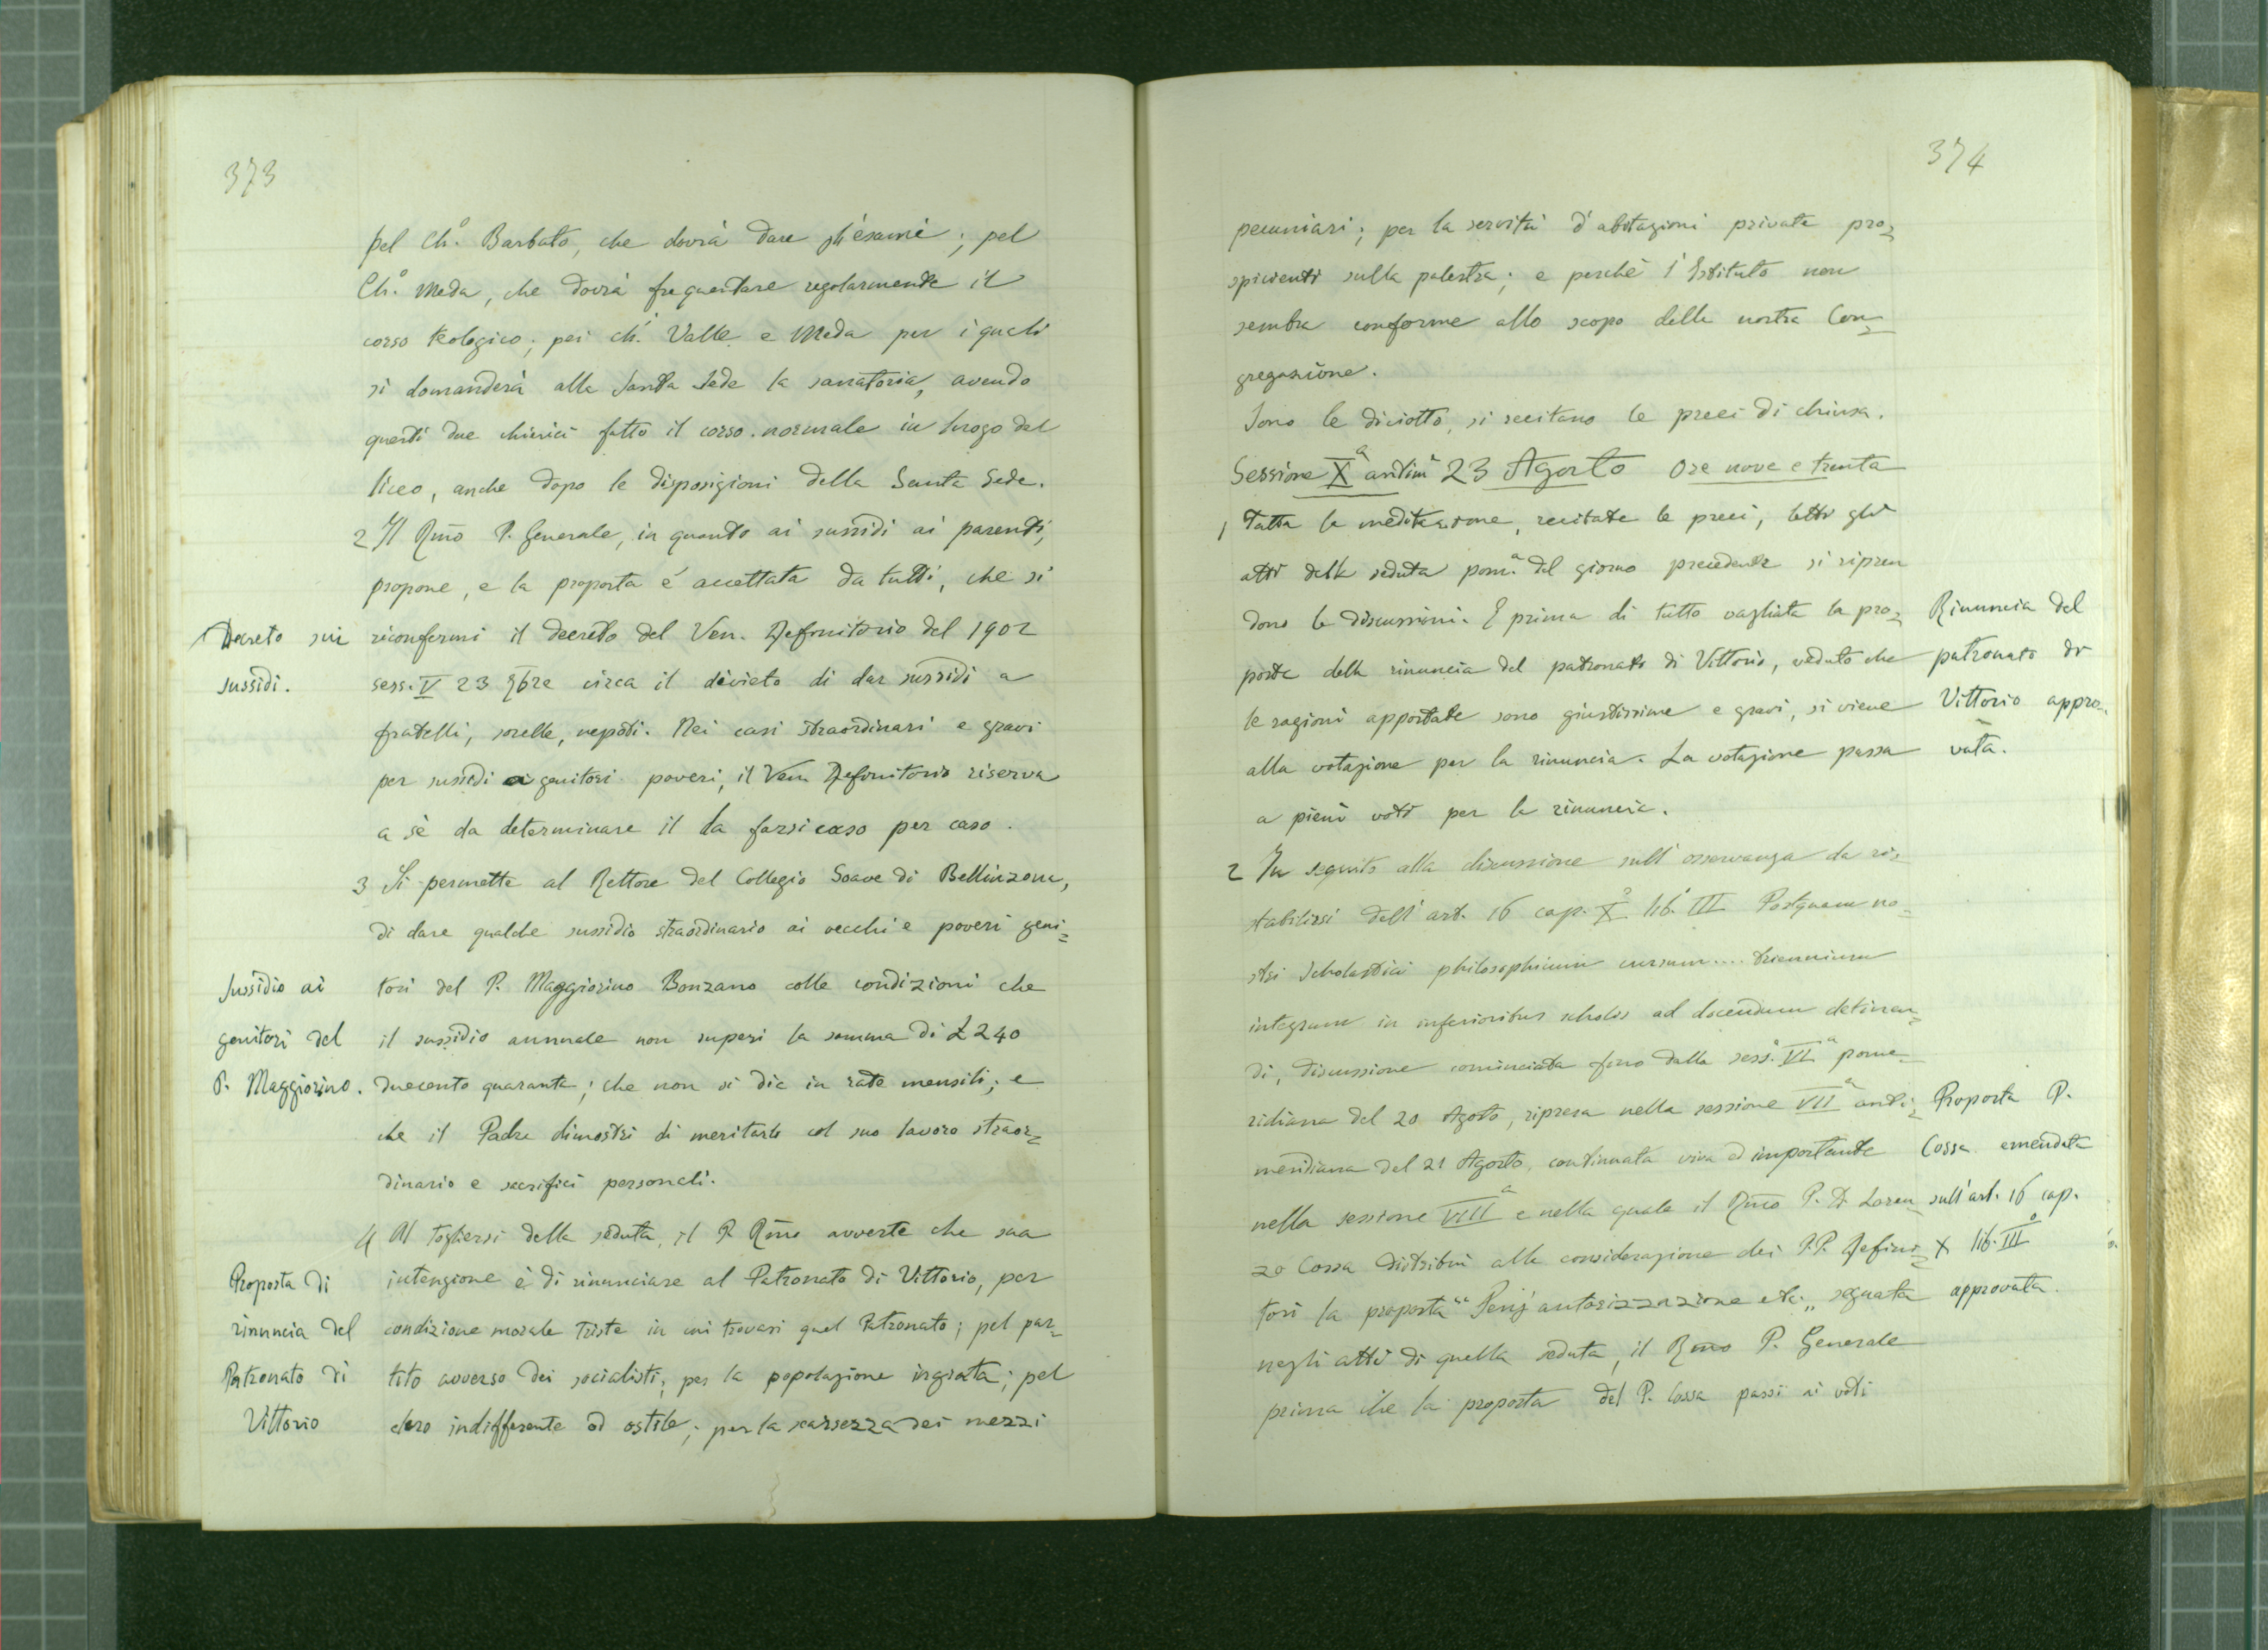 373
pel Ch.º Barbato, che dovrà dare gli esami; pel
Ch.º Meda, che dovrà frequentare regolarmente il
corso teologico; pei ch.i Valle e Meda per i quali
si domanderà alla Santa Sede la sanatoria, avendo
questi due chierici fatto il corso normale in luogo del
liceo, anche dopo le disposizioni della Santa Sede.
2 Il Rmo P. Generale, in quanto ai sussidi ai parenti,
propone, e la proposta è accettata da tutti, che si
Decreto sui
sussidi.
riconfermi il decreto del Ven. Definitorio del 1902
sess. V 23 9bre circa il divieto di dar sussidi a
fratelli, sorelle, nepoti. Nei casi straordinari e gravi
per sussidi a genitori poveri, il Ven. Definitorio riserva
a sè da determinare il da farsi caso per caso.
3 Si permette al Rettore del Collegio Soave di Bellinzona,
di dare qualche sussidio straordinario ai vecchi e poveri geni=
Sussidio ai
genitori del
P. Maggiorino.
tori del P. Maggiorino Bonzano colle condizioni che
il sussidio annuale non superi la somma di £ 240
duecento quaranta; che non si dia in rate mensili; e
che il Padre dimostri di meritarlo col suo lavoro straor=
dinario e sacrifici personali.
4 Al togliersi della seduta, il P. Rmo avverte che sua
Proposta di
rinuncia del
Patronato di
Vittorio
intenzione è di rinunciare al Patronato di Vittorio, per
condizione morale triste in cui trovasi quel Patronato; pel par=
tito avverso dei socialisti; per la popolazione ingrata; pel
clero indifferente ed ostile; per la scarsezza dei mezzi
374
pecuniari; per la servitù d'abitazioni private pro=
spicienti sulla palestra; e perchè l'Istituto non
sembra conforme allo scopo della nostra Con=
gregazione.
Sono le diciotto, si recitano le preci di chiusa.
Sessione Xª antimª 23 Agosto Ore nove e trenta
1 Fatta la meditazione, recitate le preci, letti gli
atti della seduta pom.ª del giorno precedente si ripren
dono le discussioni. E prima di tutto vagliata la pro=
posta della rinuncia del patronato di Vittorio, veduto che
le ragioni apportate sono giustissime e gravi, si viene
alla votazione per la rinuncia. La votazione passa
a pieni voti per la rinuncia.
Rinuncia del
patronato di
Vittorio appro=
vata.
2 In seguito alla discussione sull'osservanza da ri=
stabilirsi dell'art. 16 cap. X lib. III Postquam no=
stri Scholastici philosophicum cursum.... triennium
integrum in inferioribus scholis ad docendum detinen=
di, discussione cominciata fino dalla sess. VIª pome=
ridiana del 20 Agosto, ripresa nella sessione VIIª anti=
meridiana del 21 Agosto, continuata viva ed importante
nella sessione VIIIª e nella quale il Rmo P. D. Loren=
zo Cossa distribuì alla considerazione dei P.P. Defini=
tori la proposta “ autorizzazione etc. „ segnata
negli atti di quella seduta, il Rmo P. Generale
prima che la proposta del P. Cossa passi ai voti
Proposta P.
Cossa emendata
sull'art. 16 cap.
X lib. III
approvata.